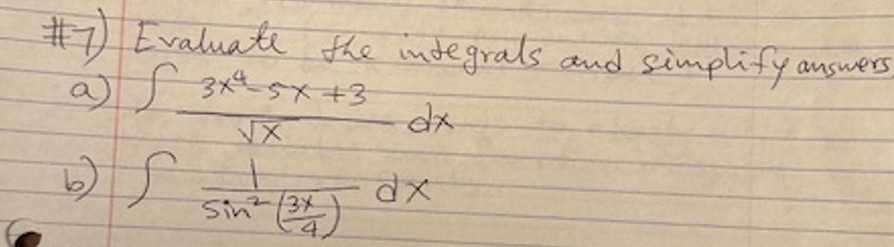 #7) Evaluate the integrals and simplify answers
a) ∫ 3x⁴-5x+3
√x dx
b) ∫ 1
sin² (3x/4) dx